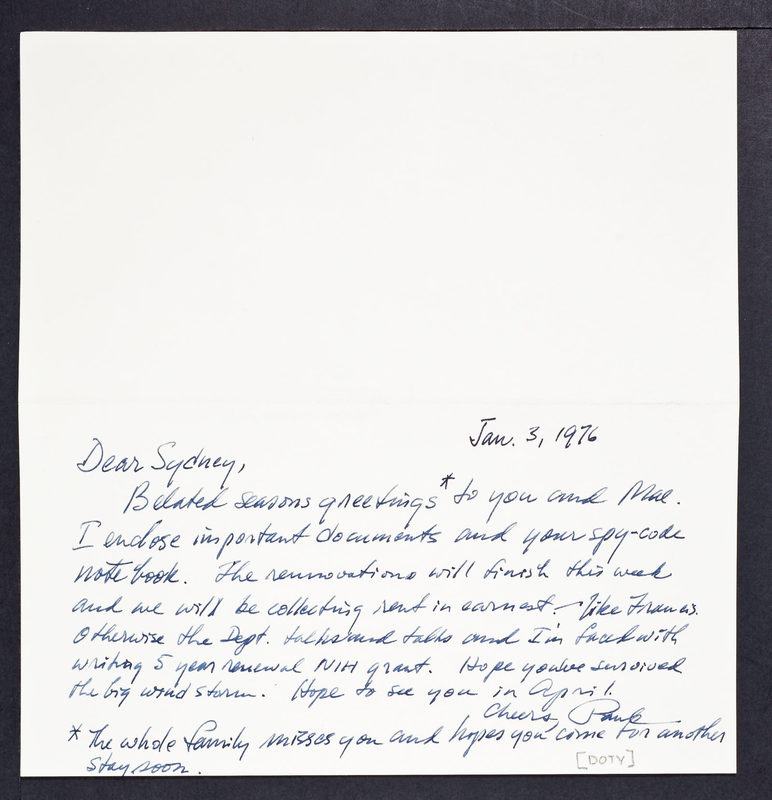 Jan. 3, 1976
Dear Sydney,
Belated seasons greetings* to you and Mae.
I enclose important documents and your spy-code
note book. The rennovations will finish this week
and we will be collecting rent in earnest – like Francis.
Otherwise the Dept. talks and talks and I'm faced with
writing 5 year renewal NIH grant. Hope you've survived
the big wind storm. Hope to see you in April.
Cheers, Paul
* The whole family misses you and hopes you come for another
stay soon.
[DOTY]